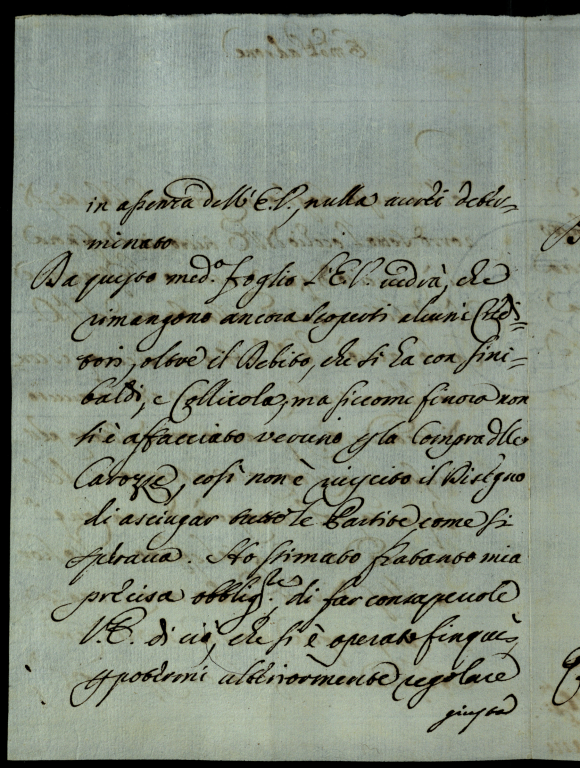 in assenza dell'E.V., nulla aurei deter-
minato
Da questo med.º foglio l'E.V. vedrà, che
rimangono ancora scoperti alcuni Credi-
tori, oltre il Debito, che si ha con Sini-
baldi, e Collicola, ma siccome finora non
si è affacciato veruno p la Compra dlle
Carozze, così non è riuscito il Disegno
di asciugar tutte le Partite, come si
sperava. Ho stimato frattanto mia
precisa obblig.ne di far consapevole
V.E. di ciò, che si è operato finquì,
p potermi ulteriormente regolare
giusta